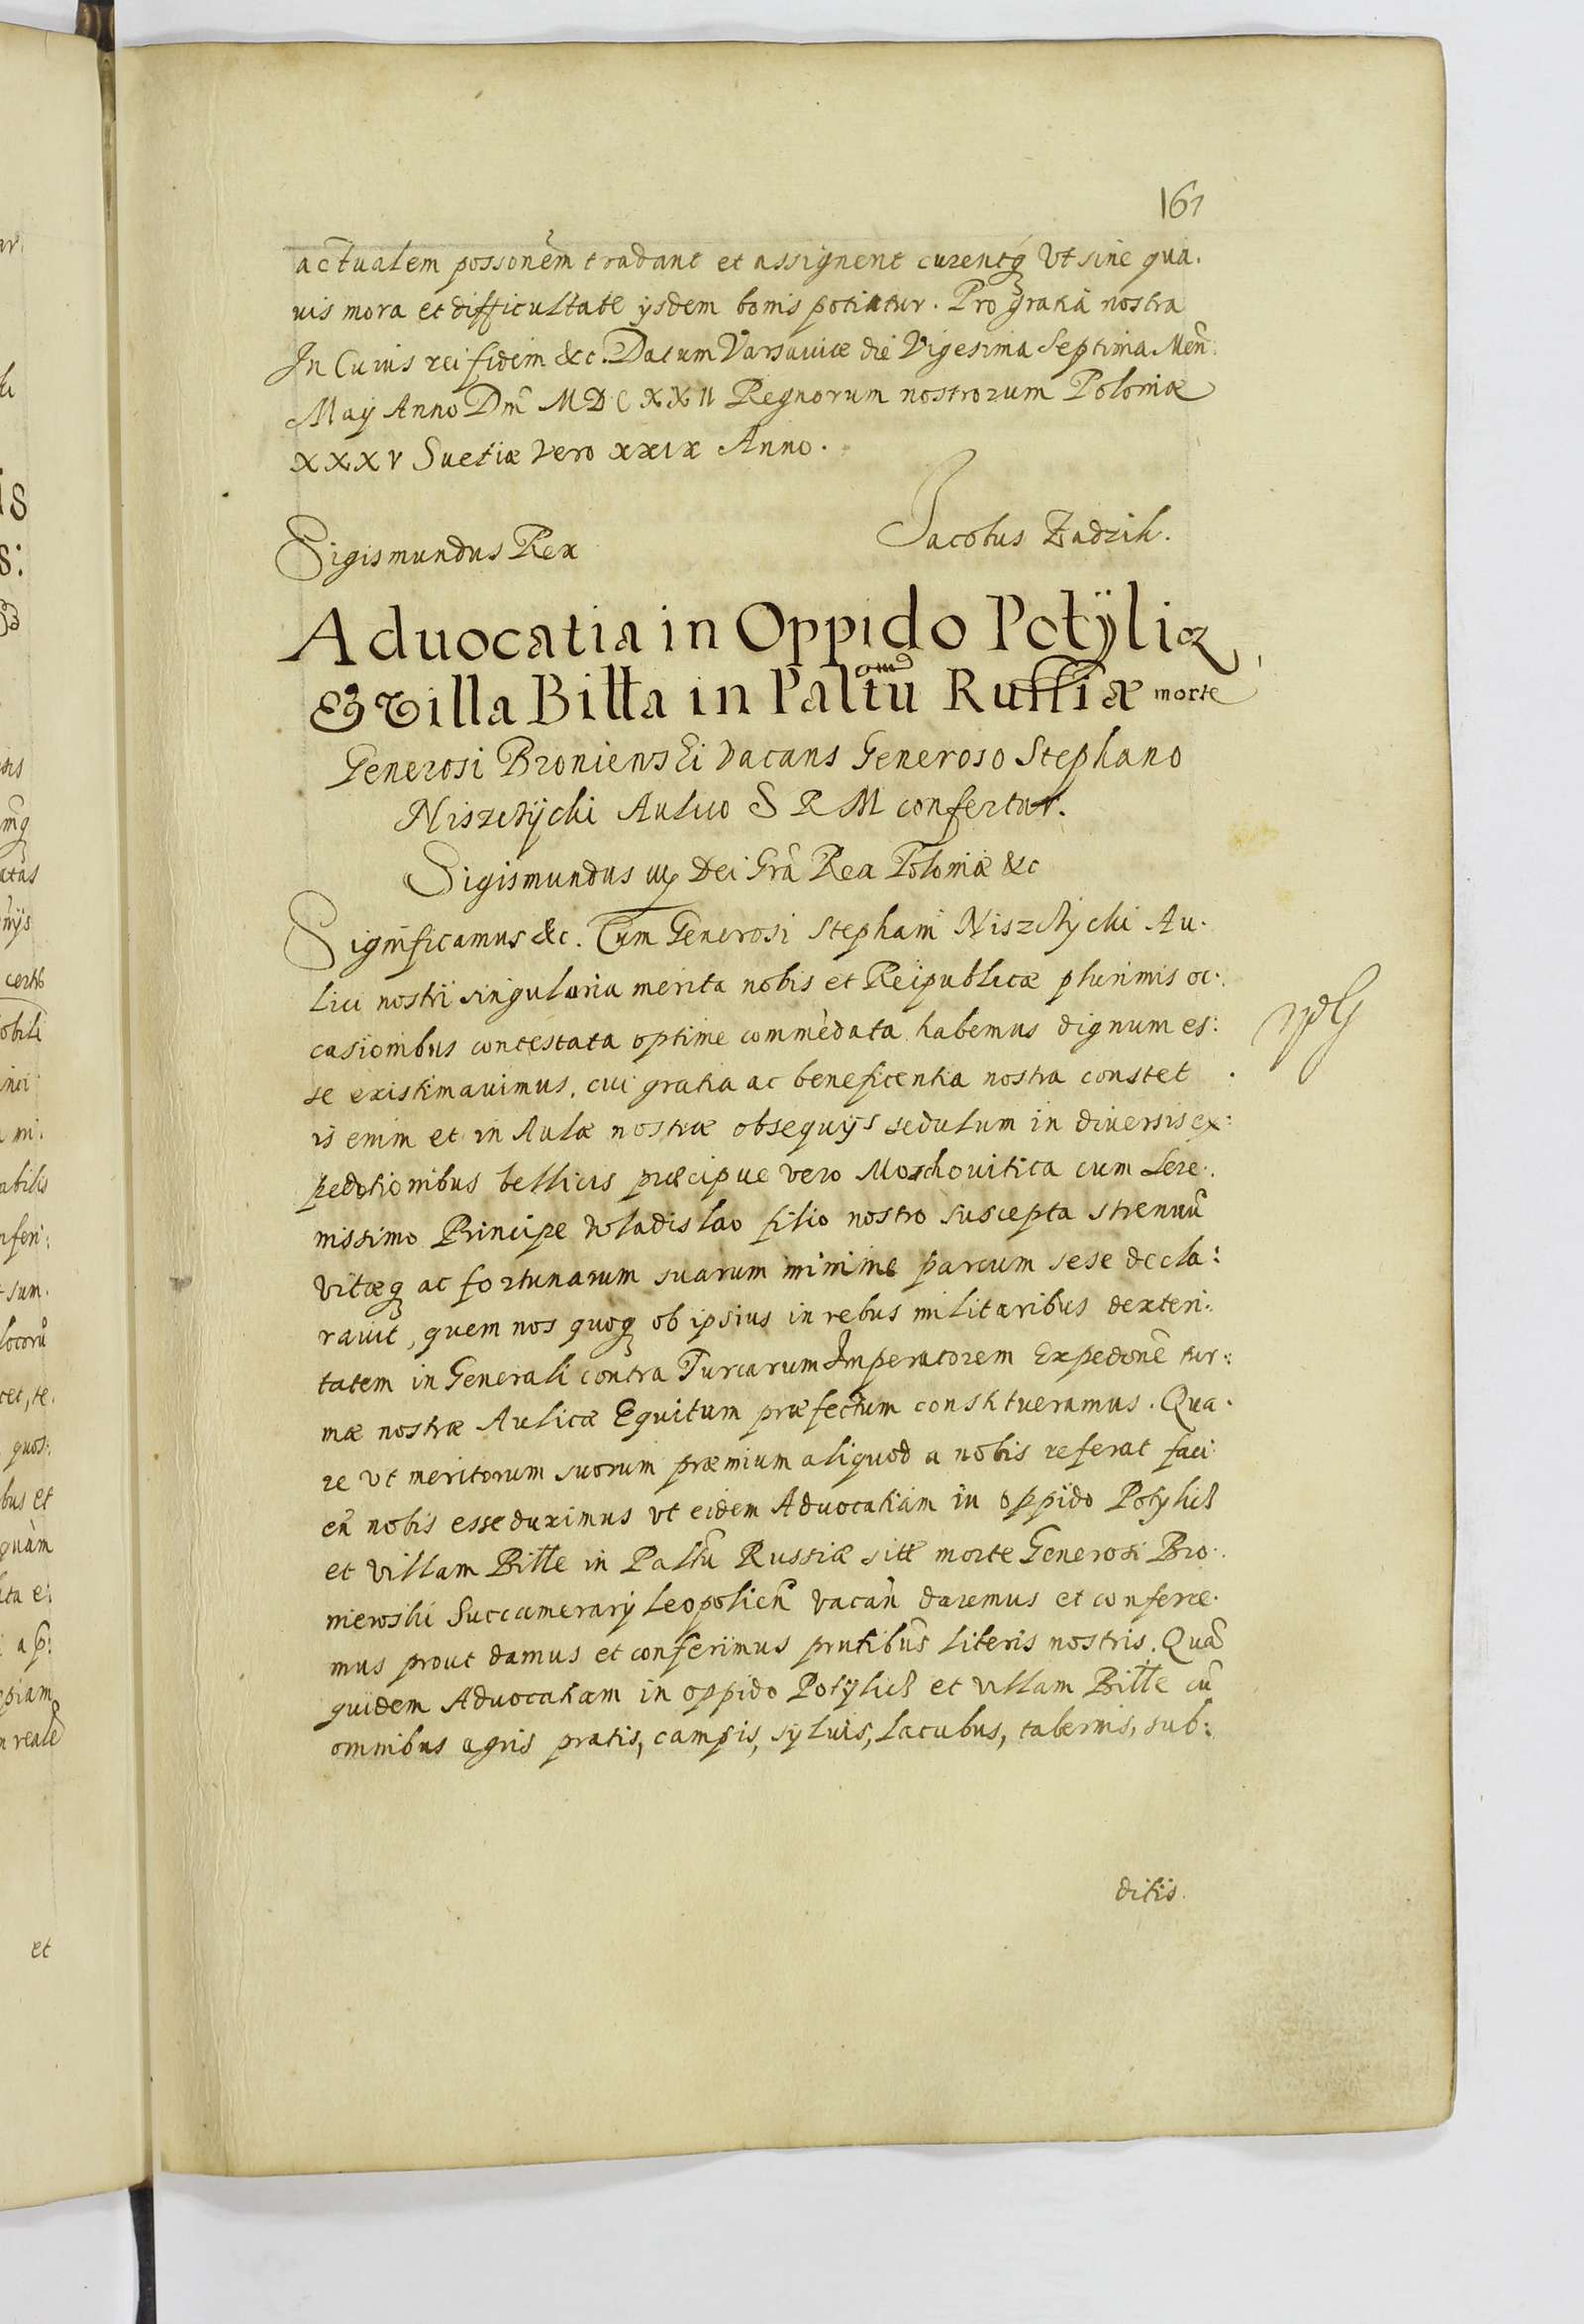 161
actualem possonem̃ tradant et assignent curentq̃ Vt sine qua.
uis mora et difficultate ijsdem bonis potiatur. Pro gratia nostra
In Cuius rei fidem &c. Datum Varsauiæ die Vigesima Septima Men̄.
Maij Anno Dnī MDCXXII Regnorum nostrorum Poloniæ
XXXV Suetiæ Vero XXIX Anno.
Sigismundus Rex
Jacobus Zadzik.
Aduocatia in Oppido Potÿlicz
& Villa Biłła in Paltū Russiæ morte
Generosi Broniewski Vacans Generoso Stephano
Niszczÿcki Aulico S R M confertur.
Sigismundus III Dei Grā Rex Poloniæ &c
Significamus &c. Cum Generosi Stephani Niszczÿcki Au.
lici nostri singularia merita nobis et Reipublicæ plurimis oc:
casionibus contestata optime commẽdata habemus dignum es:
se existimauimus, cui gratia ac beneficentia nostra constet
is enim et in Aulæ nostræ obsequijs sedulum in diuersis ex:
peditionibus bellicis præcipue vero Moschouitica cum Sere:
nissimo Principe Wladislao filio nostro suscepta strenuū
vitæq̃ ac fortunarum suarum minime parcum sese decla:
rauit, quem nos quoq̃ ob ipsius in rebus militaribus dexteri:
tatem in Generali contra Turcarum Imperatorem Expedonẽ tur:
mæ nostræ Aulicæ Equitum præfectum constitueramus. Qua.
re vt meritorum suorum præmium aliquod a nobis referat faci
eñ nobis esse duximus vt eidem Aduocatiam in oppido Potylicz
et villam Biłłe in Paltū Russiæ sitẽ morte Generosi Bro.
niewski Succamerarij Leopolieñ vacañ daremus et conferre.
mus prout damus et conferimus pntibus literis nostris. Quā
quidem Aduocatiam in oppido Potÿlicz et villam Biłłe cū
omnibus agris pratis, campis, syluis, lacubus, tabernis, sub:
ditis.